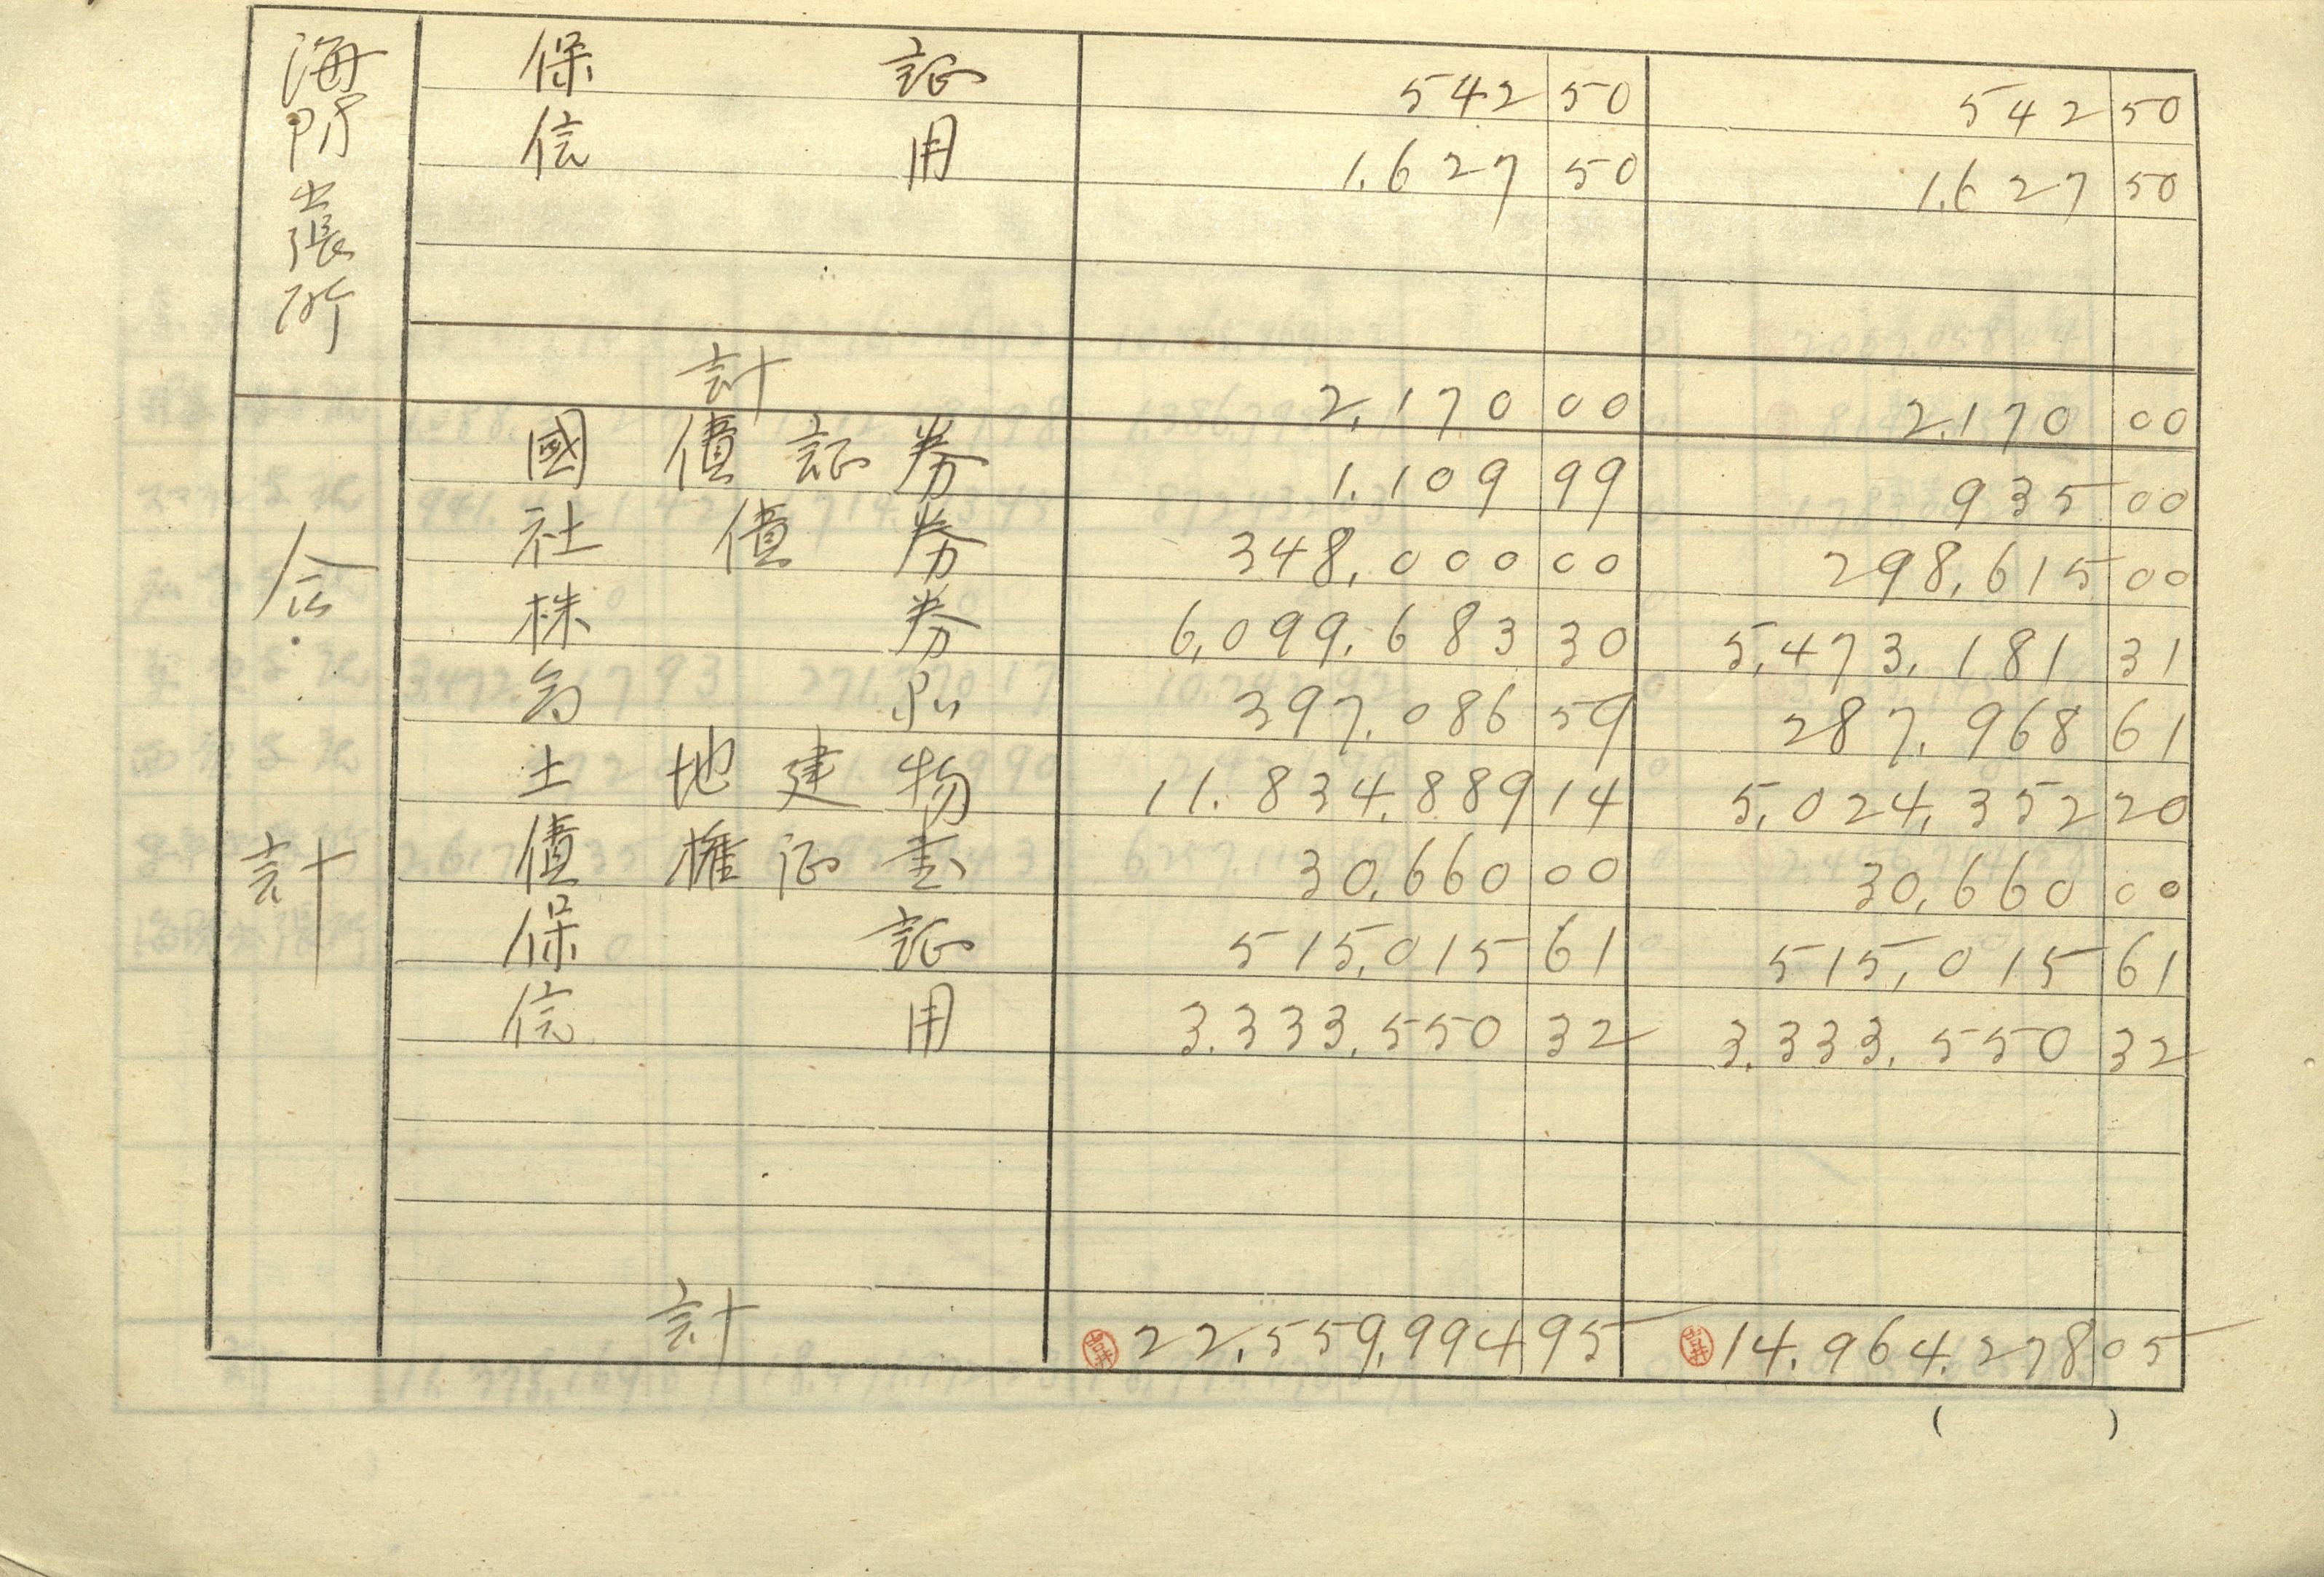 海防出張所
保証 542 50 542 50
信用 1.627 50 1.627 50
計 2,170 00 2,170 00
合計
國債証券 1.109 99 935 00
社債券 348,000 00 298,615 00
株券 6,099,683 30 5,473,181 31
商品 397,086 59 287,968 61
土地建物 11.834,889 14 5,024,352 20
債権証書 30,660 00 30,660 00
保証 515,015 61 515,015 61
信用 3.333,550 32 3.333,550 32
計 22,559,994 95 14,964,278 05
( )